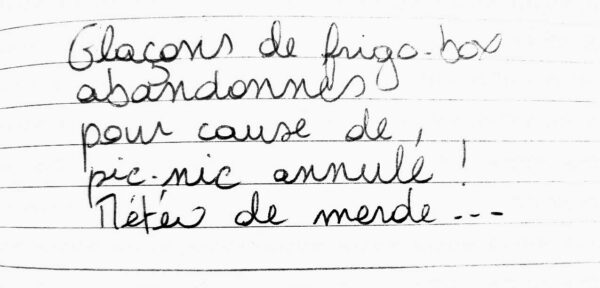 Glaçons de frigo-box
abandonnés
pour cause de
pic-nic annulé !
Météo de merde ---